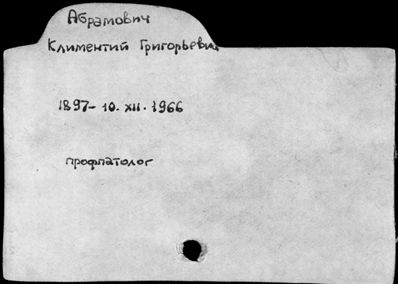 Абрамович
Климентий Григорьевич
1897- 10. XII. 1966
профпатолог